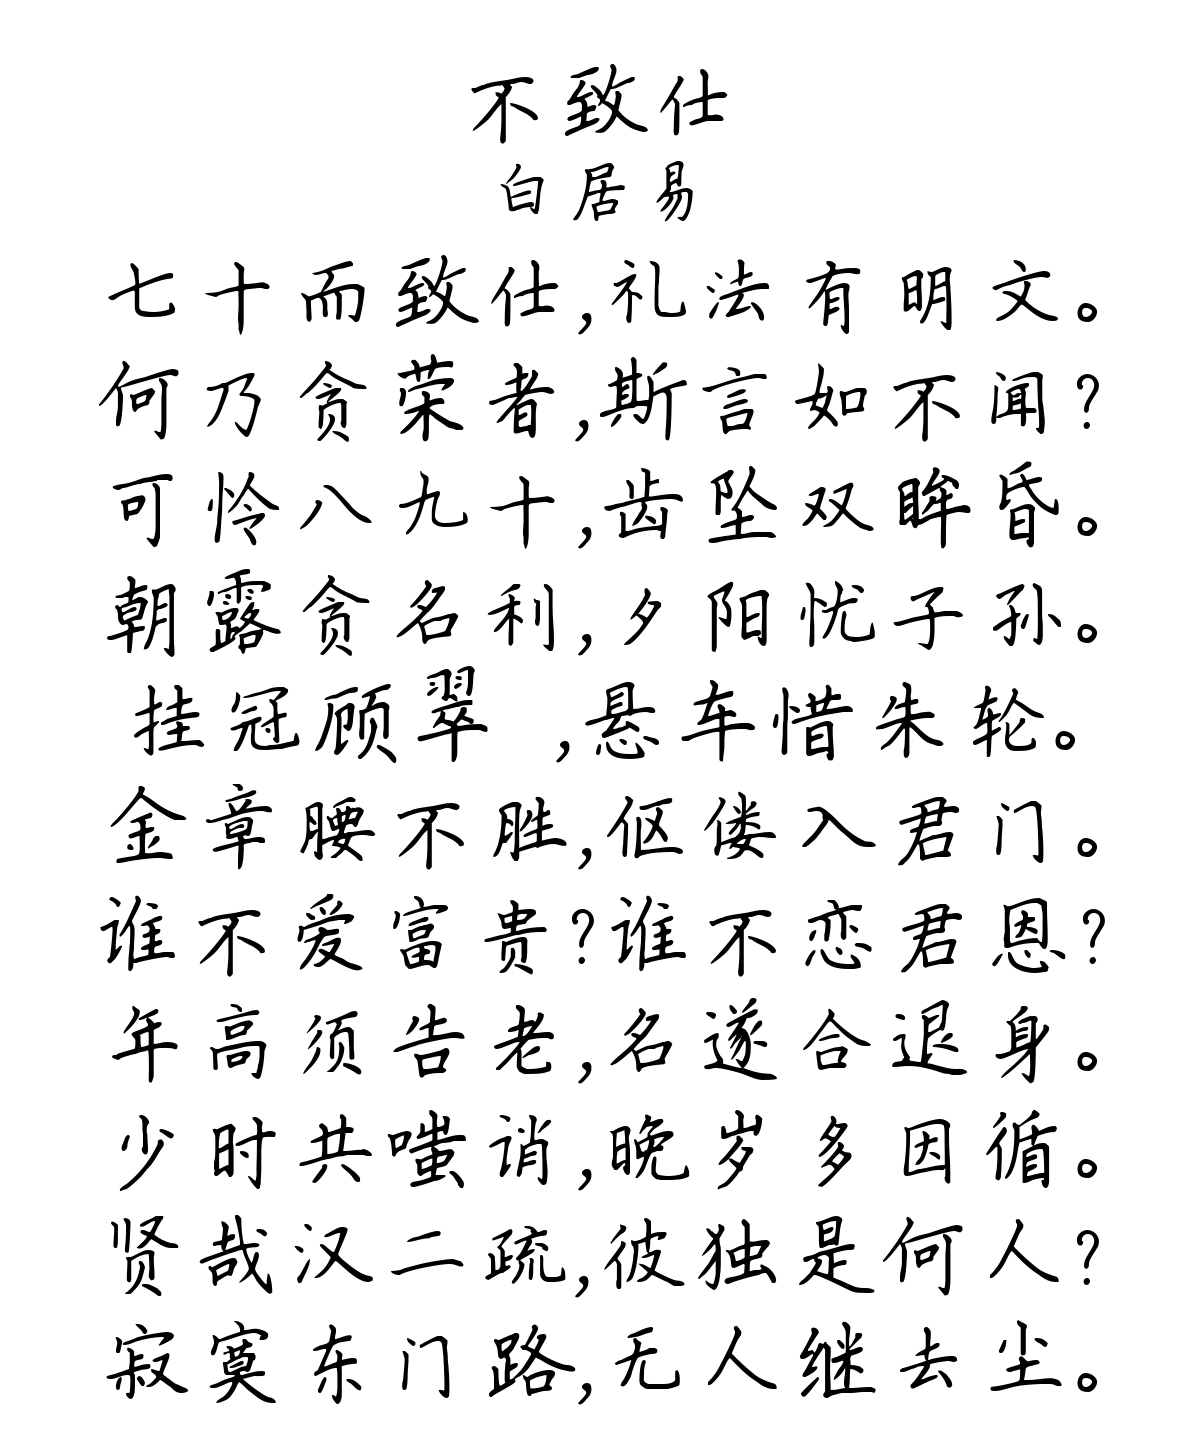 不致仕
白居易
七十而致仕,礼法有明文。
何乃贪荣者,斯言如不闻?
可怜八九十,齿坠双眸昏。
朝露贪名利,夕阳忧子孙。
挂冠顾翠 ,悬车惜朱轮。
金章腰不胜,伛偻入君门。
谁不爱富贵?谁不恋君恩?
年高须告老,名遂合退身。
少时共嗤诮,晚岁多因循。
贤哉汉二疏,彼独是何人?
寂寞东门路,无人继去尘。